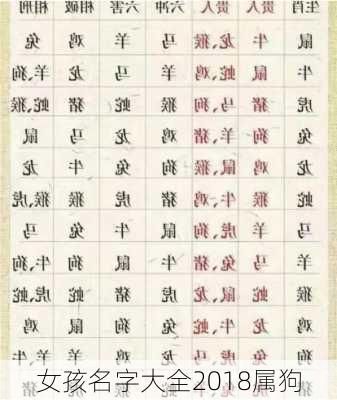 生肖 贵人 贵人 六冲 六害 相破 相刑
鼠 牛 龙、猴 马 羊 鸡 兔
牛 鼠 蛇、鸡 羊 马 龙 羊、狗
虎 猪 马、狗 猴 蛇 猪 蛇、猴
兔 狗 羊、猪 鸡 龙 马 鼠
龙 鸡 鼠、猴 狗 兔 牛 龙
蛇 猴 牛、鸡 猪 虎 猴 猴、虎
马 羊 虎、狗 鼠 牛 兔 马
羊 马 兔、猪 牛 鼠 狗 牛、狗
猴 蛇 鼠、龙 虎 猪 蛇 虎、蛇
鸡 龙 牛、蛇 兔 狗 鼠 鸡
狗 兔 虎、马 龙 鸡 羊 牛、羊
女孩名字大全2018属狗